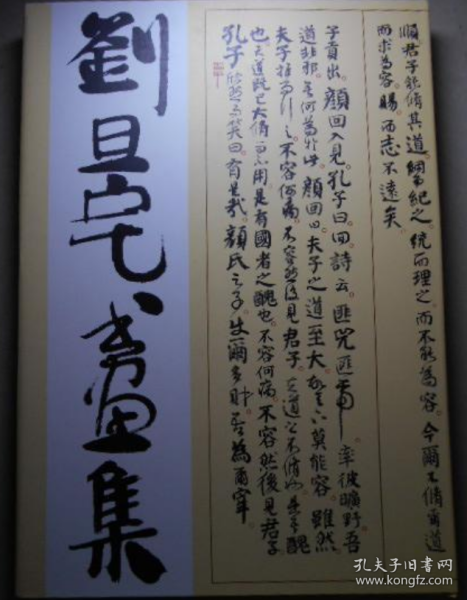 劉旦宅書畫集
賜君子能脩其道綱而紀之統而理之而不能為容今爾不脩爾道
而求為容賜而志不遠矣
子貢出顏回入見孔子曰回詩云匪兕匪虎率彼曠野吾
道非邪吾何為於此顏回曰夫子之道至大故天下莫能容雖然
夫子推而行之不容何病不容然後見君子夫道之不脩也是吾醜
也夫道既已大脩而不用是有國者之醜也不容何病不容然後見君子
孔子欣然而笑曰有是哉顏氏之子使爾多財吾為爾宰
孔夫子旧书网
www.kongfz.com